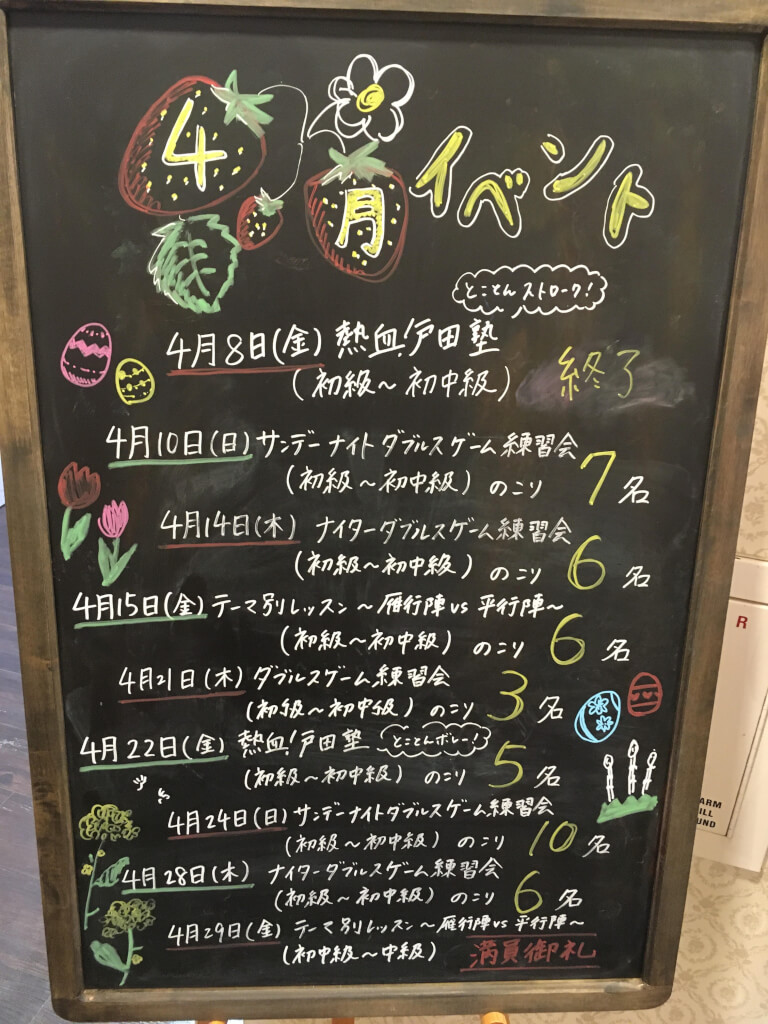 4月イベント
とことんストローク!
4月8日(金) 熱血!戸田塾
(初級～初中級) 終了
4月10日(日) サンデーナイトダブルスゲーム練習会
(初級～初中級) のこり 7名
4月14日(木) ナイターダブルスゲーム練習会
(初級～初中級) のこり 6名
4月15日(金) テーマ別レッスン～雁行陣vs平行陣～
(初級～初中級) のこり 6名
4月21日(木) ダブルスゲーム練習会
(初級～初中級) のこり 3名
4月22日(金) 熱血!戸田塾 とことんボレー!
(初級～初中級) のこり 5名
4月24日(日) サンデーナイトダブルスゲーム練習会
(初級～初中級) のこり 10名
4月28日(木) ナイターダブルスゲーム練習会
(初級～初中級) のこり 6名
4月29日(金) テーマ別レッスン～雁行陣vs平行陣～
(初中級～中級) 満員御礼
R
ARM
ILL
UND